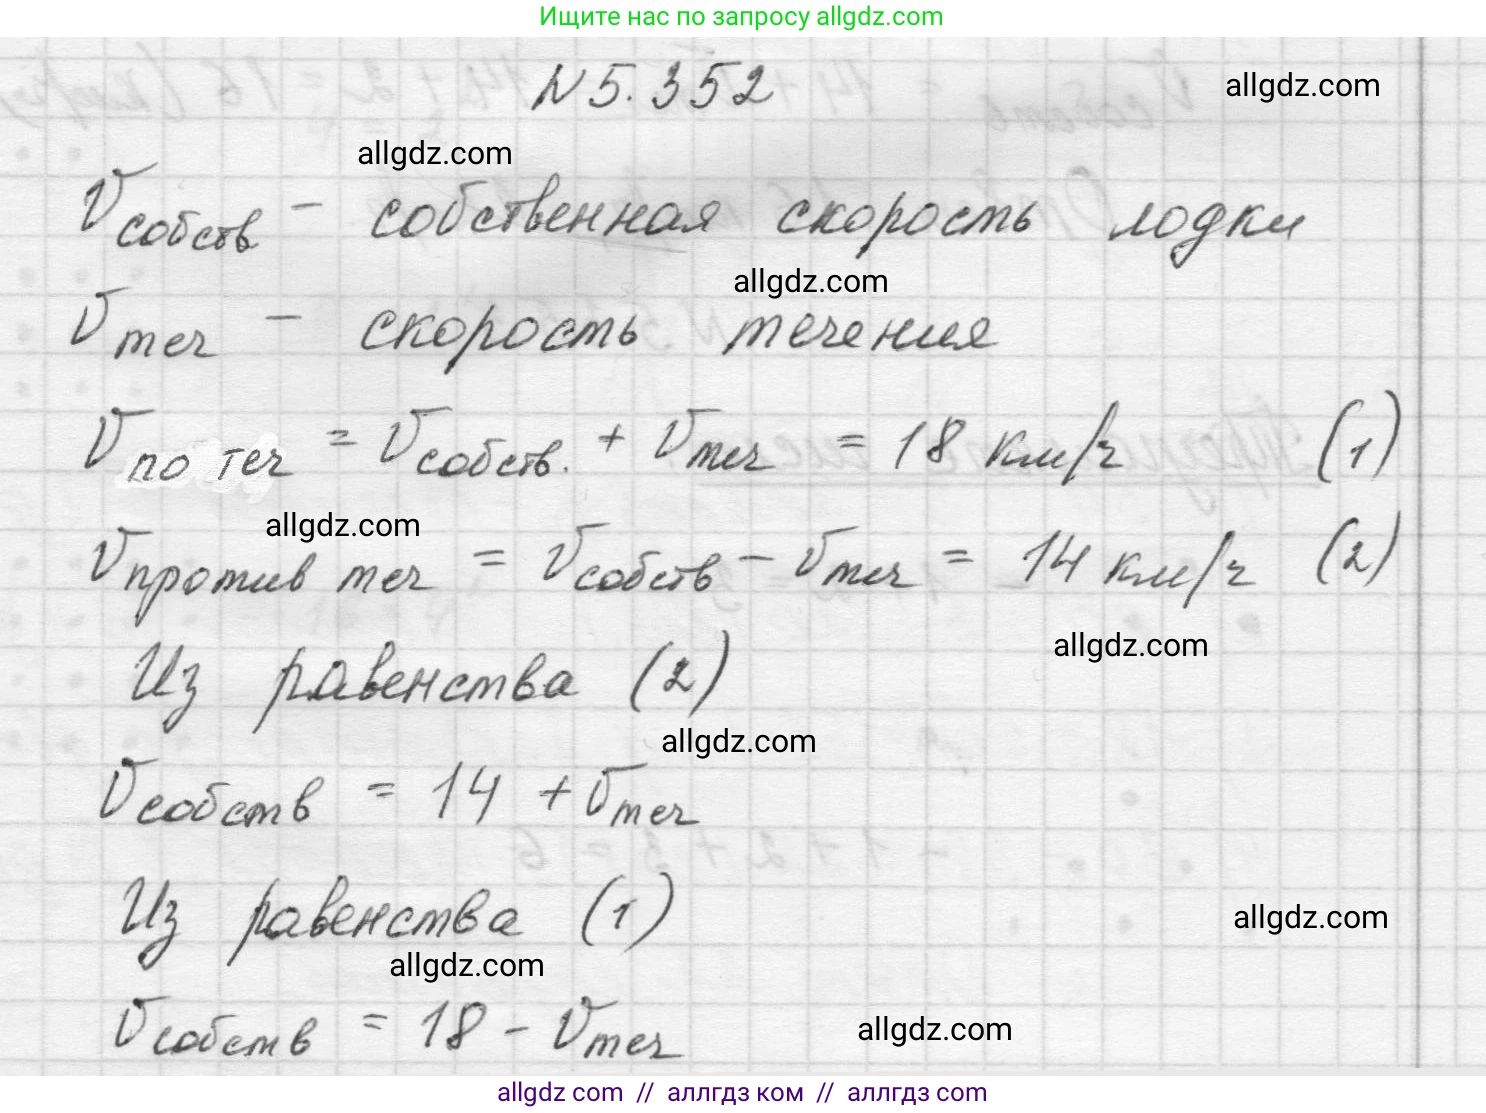 Ищите нас по запросу allgdz.com
N 5.352
allgdz.com
allgdz.com
Vсобств - собственная скорость лодки
allgdz.com
Vтеч - скорость течения
Vпо теч = Vсобств. + Vтеч = 18 км/ч (1)
allgdz.com
Vпротив теч = Vсобств - Vтеч = 14 км/ч (2)
allgdz.com
Из равенства (2)
allgdz.com
Vсобств = 14 + Vтеч
Из равенства (1)
allgdz.com
allgdz.com
Vсобств = 18 - Vтеч
allgdz.com
allgdz com // аллгдз ком // аллгdз com